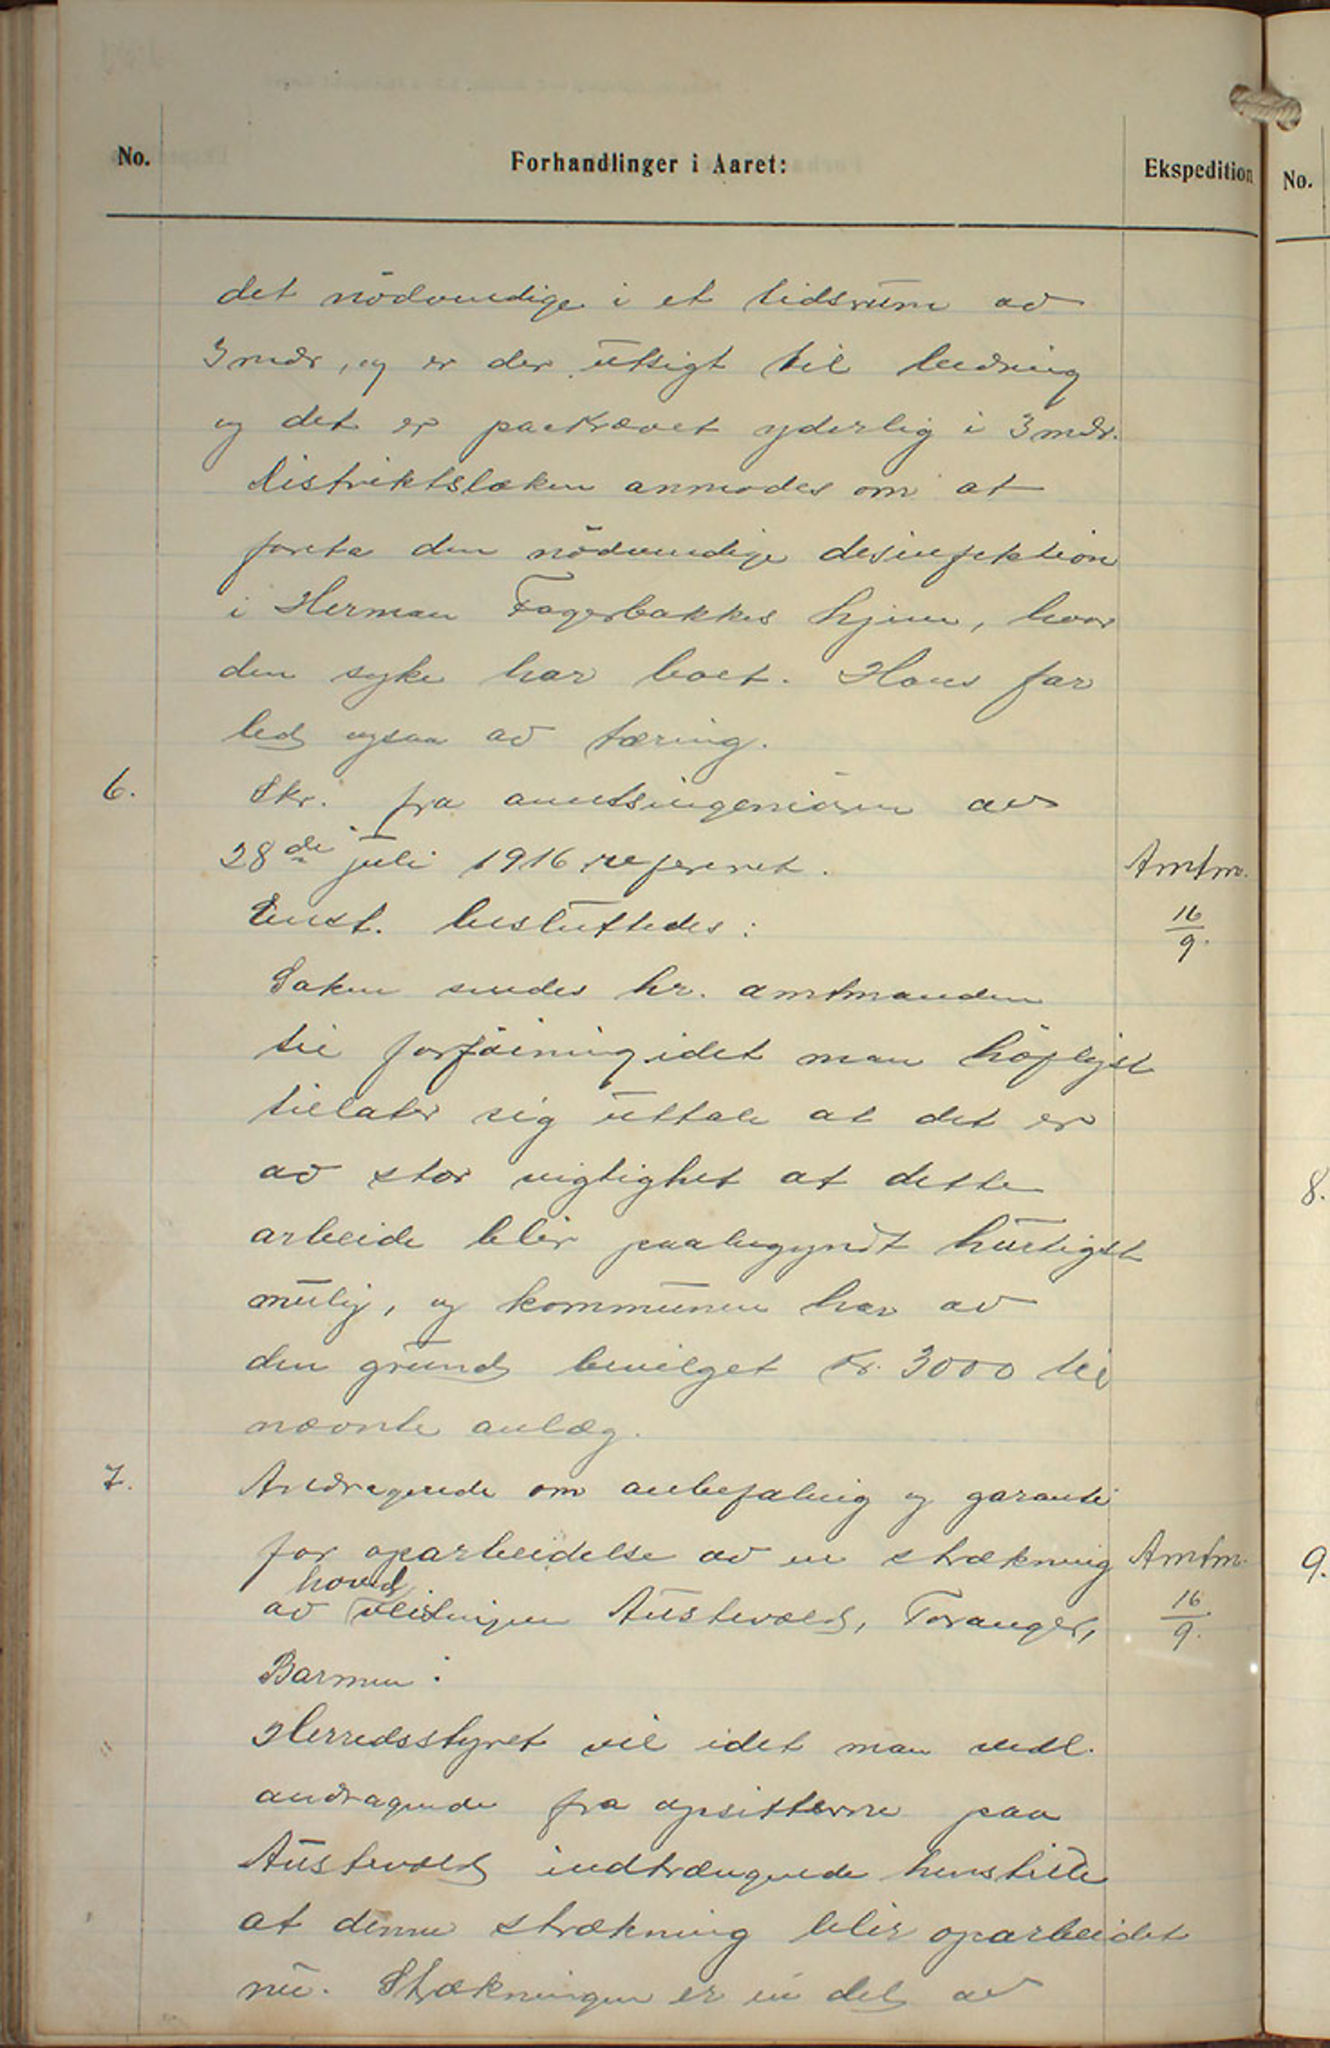 No.
Forhandlinger i Aaret:
Ekspedition
No.
det nödvendige i et tidsrum av
3 mdr, og er der utsigt til bedring
og det er paakrævet yderlig i 3 mdr.
Distriktslæken anmodes om at
foreta den nödvendige desinfektion
i Herman Fagerbakkes hjem, hvor
den syke har boet. Hans far
led ogsaa av tæring.
6. Skr. fra amtsingeniören av
28de juli 1916 referert. Amtm.
Enst. besluttedes: 16/9.
Saken sendes hr. amtmanden
til forföining idet man höfligst
tillater sig uttale at det er
av stor vigtighet at dette
8.
arbeide blir paabegyndt hurtigst
mulig, og kommunen har av
den grund bevilget kr. 3000 til
nævnte anlæg.
7. Andragende om anbefaling og garanti
for oparbeidelse av en strækning Amtm.
9.
hoved
av veilinjen Austevold, Foranger, 16/9.
Barmen:
Herredsstyret vil idet man vedl.
andragende fra opsitterne paa
Austevold indtrængende henstille
at denne strækning blir oparbeidet
nu. Strækningen er en del av